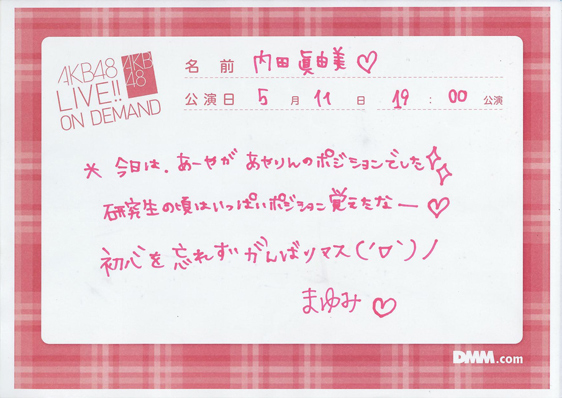 AKB48
LIVE!!
ON DEMAND
AKB
48
名前 内田眞由美♡
公演日 5月11日 19:00公演
* 今日は、あーやが あやりんのポジションでした
研究生の頃はいっぱいポジション覚えたなー♡
初心を忘れずがんばりマス(´▽`)ノ
まゆみ♡
DMM.com